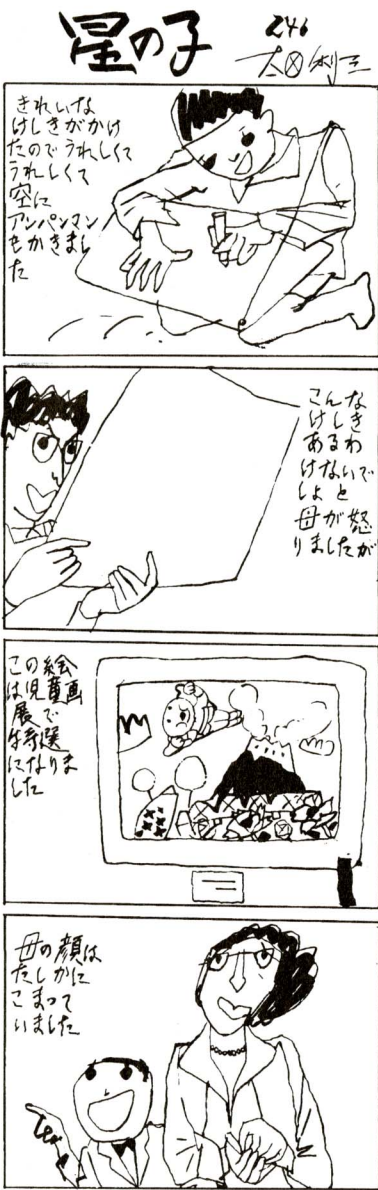 星の子
246
きれいな
けしきがかけ
たのでうれしくて
うれしくて
空に
アンパンマン
をかきまし
た
こんな
けしき
あるわ
けないで
しょと
母が怒
りましたが
この絵
は児童画
展で
特選
になりま
した
母の顔は
たしかに
こまって
いました